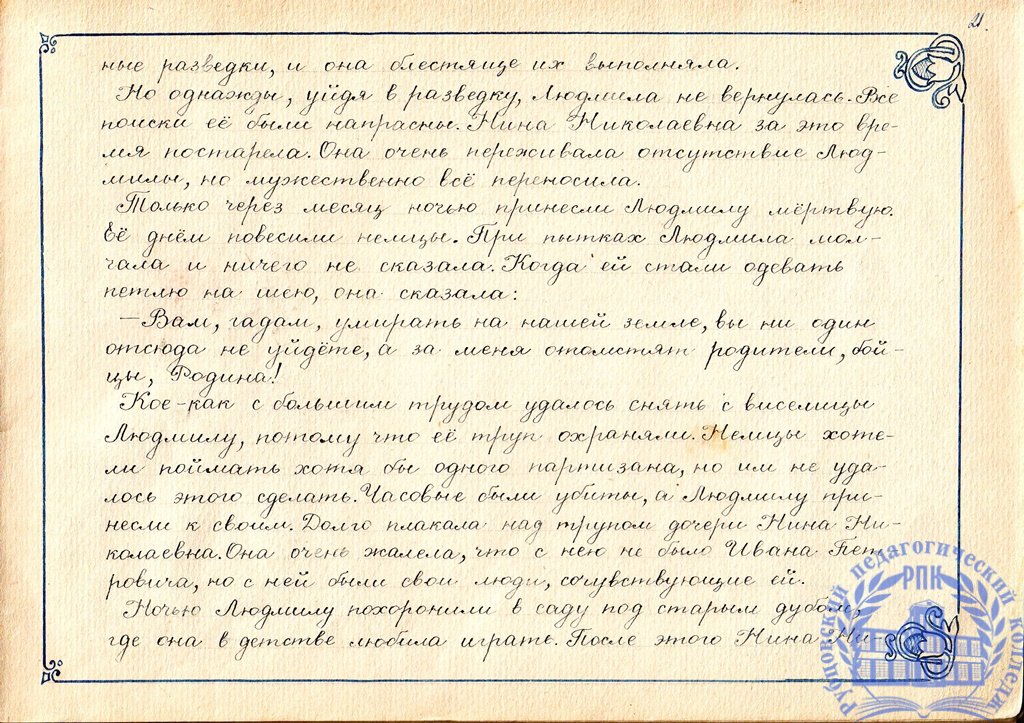 21.
ные разведки, и она блестяще их выполняла.
Но однажды, уйдя в разведку, Людмила не вернулась. Все
поиски её были напрасны. Нина Николаевна за это вре-
мя постарела. Она очень переживала отсутствие Люд-
милы, но мужественно всё переносила.
Только через месяц ночью принесли Людмилу мёртвую.
Её днём повесили немцы. При пытках Людмила мол-
чала и ничего не сказала. Когда ей стали одевать
петлю на шею, она сказала:
—Вам, гадам, умирать на нашей земле, вы ни один
отсюда не уйдёте, а за меня отомстят родители, бой-
цы, Родина!
Кое-как с большим трудом удалось снять с виселицы
Людмилу, потому что её труп охраняли. Немцы хоте-
ли поймать хотя бы одного партизана, но им не уда-
лось этого сделать. Часовые были убиты, а Людмилу при-
несли к своим. Долго плакала над трупом дочери Нина Ни-
колаевна. Она очень жалела, что с нею не было Ивана Пет-
ровича, но с ней были свои люди, сочувствующие ей.
Ночью Людмилу похоронили в саду под старым дубом,
где она в детстве любила играть. После этого Нина Ни-
Рубцовский педагогический колледж
РПК